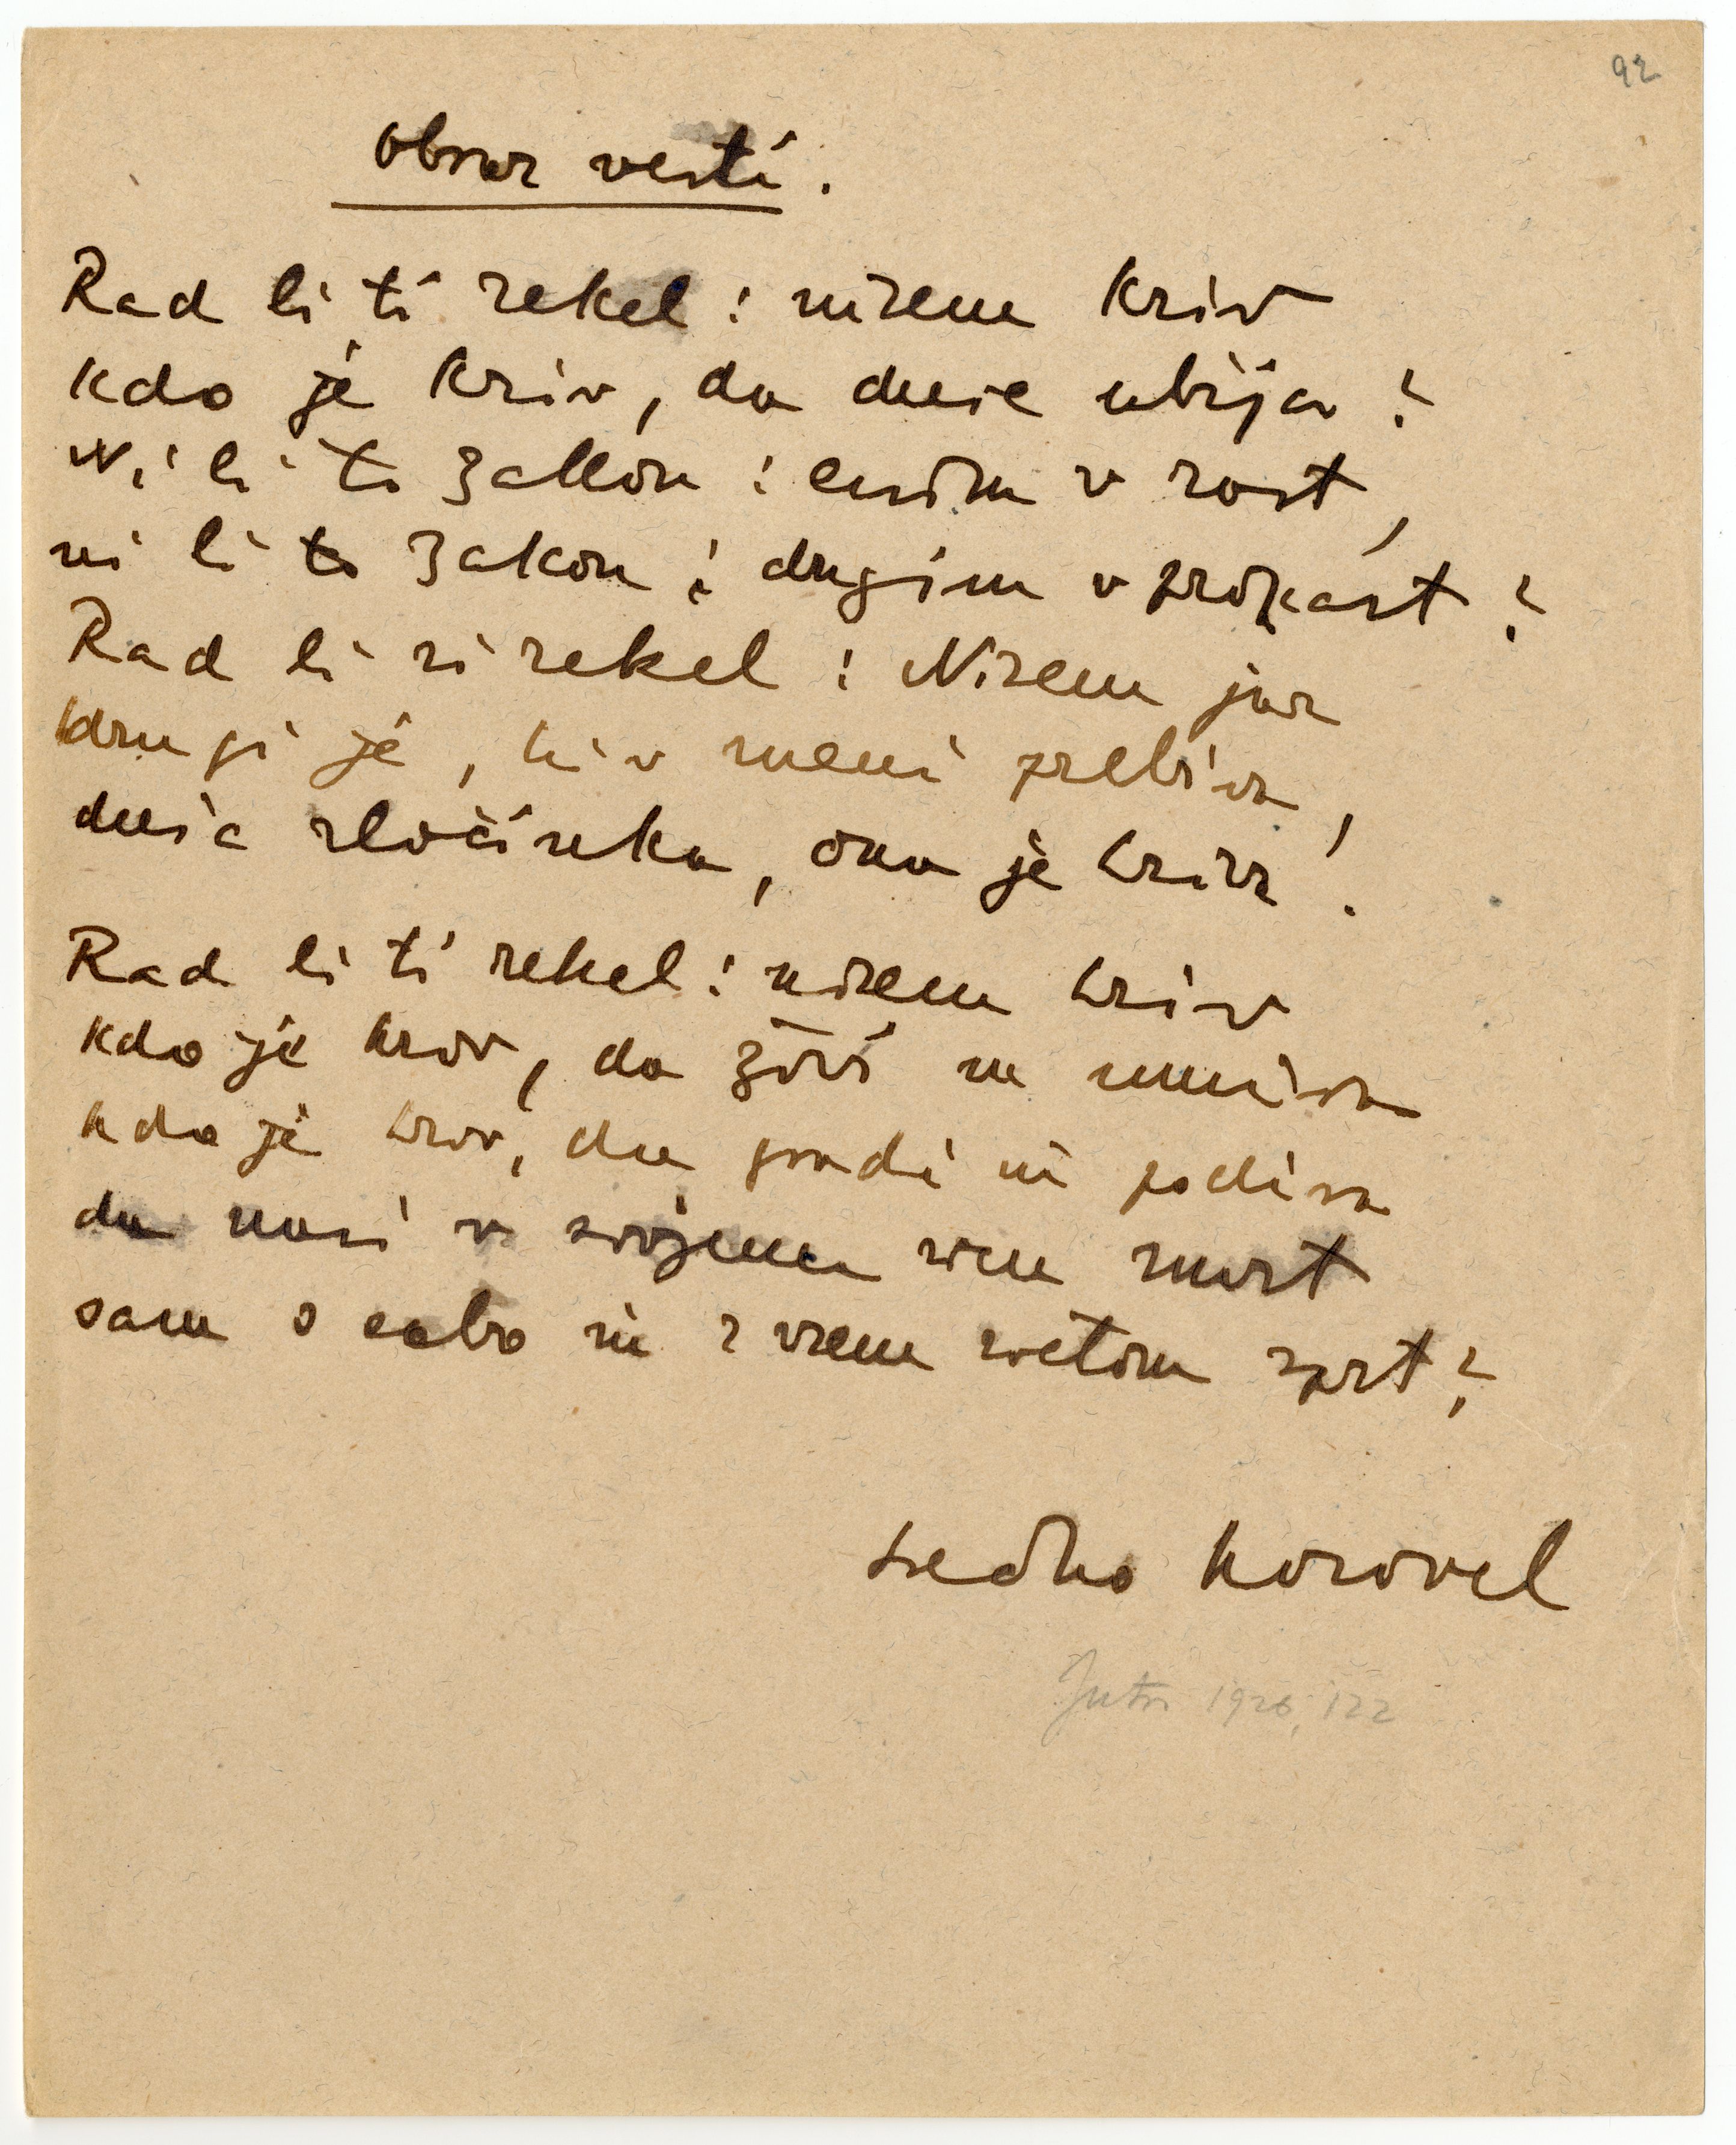 92
Obraz vesti.
Rad bi ti rekel: nisem kriv
kdo je kriv, da duše ubija?
Ni li to zakon: enim v rast,
ni li to zakon: drugim v propast?
Rad bi si rekel: Nisem jaz
drugi je, ki v meni prebiva,
duša zločinka, ona je kriva!
Rad bi ti rekel: nisem kriv
kdo je kriv, da živi in umiva
kdo je kriv, da gradi in podira
da nosi v svojem smrt
sam s sabo in z vsem svetom sprt?
Srečko Kosovel
Jutro 1926, 122